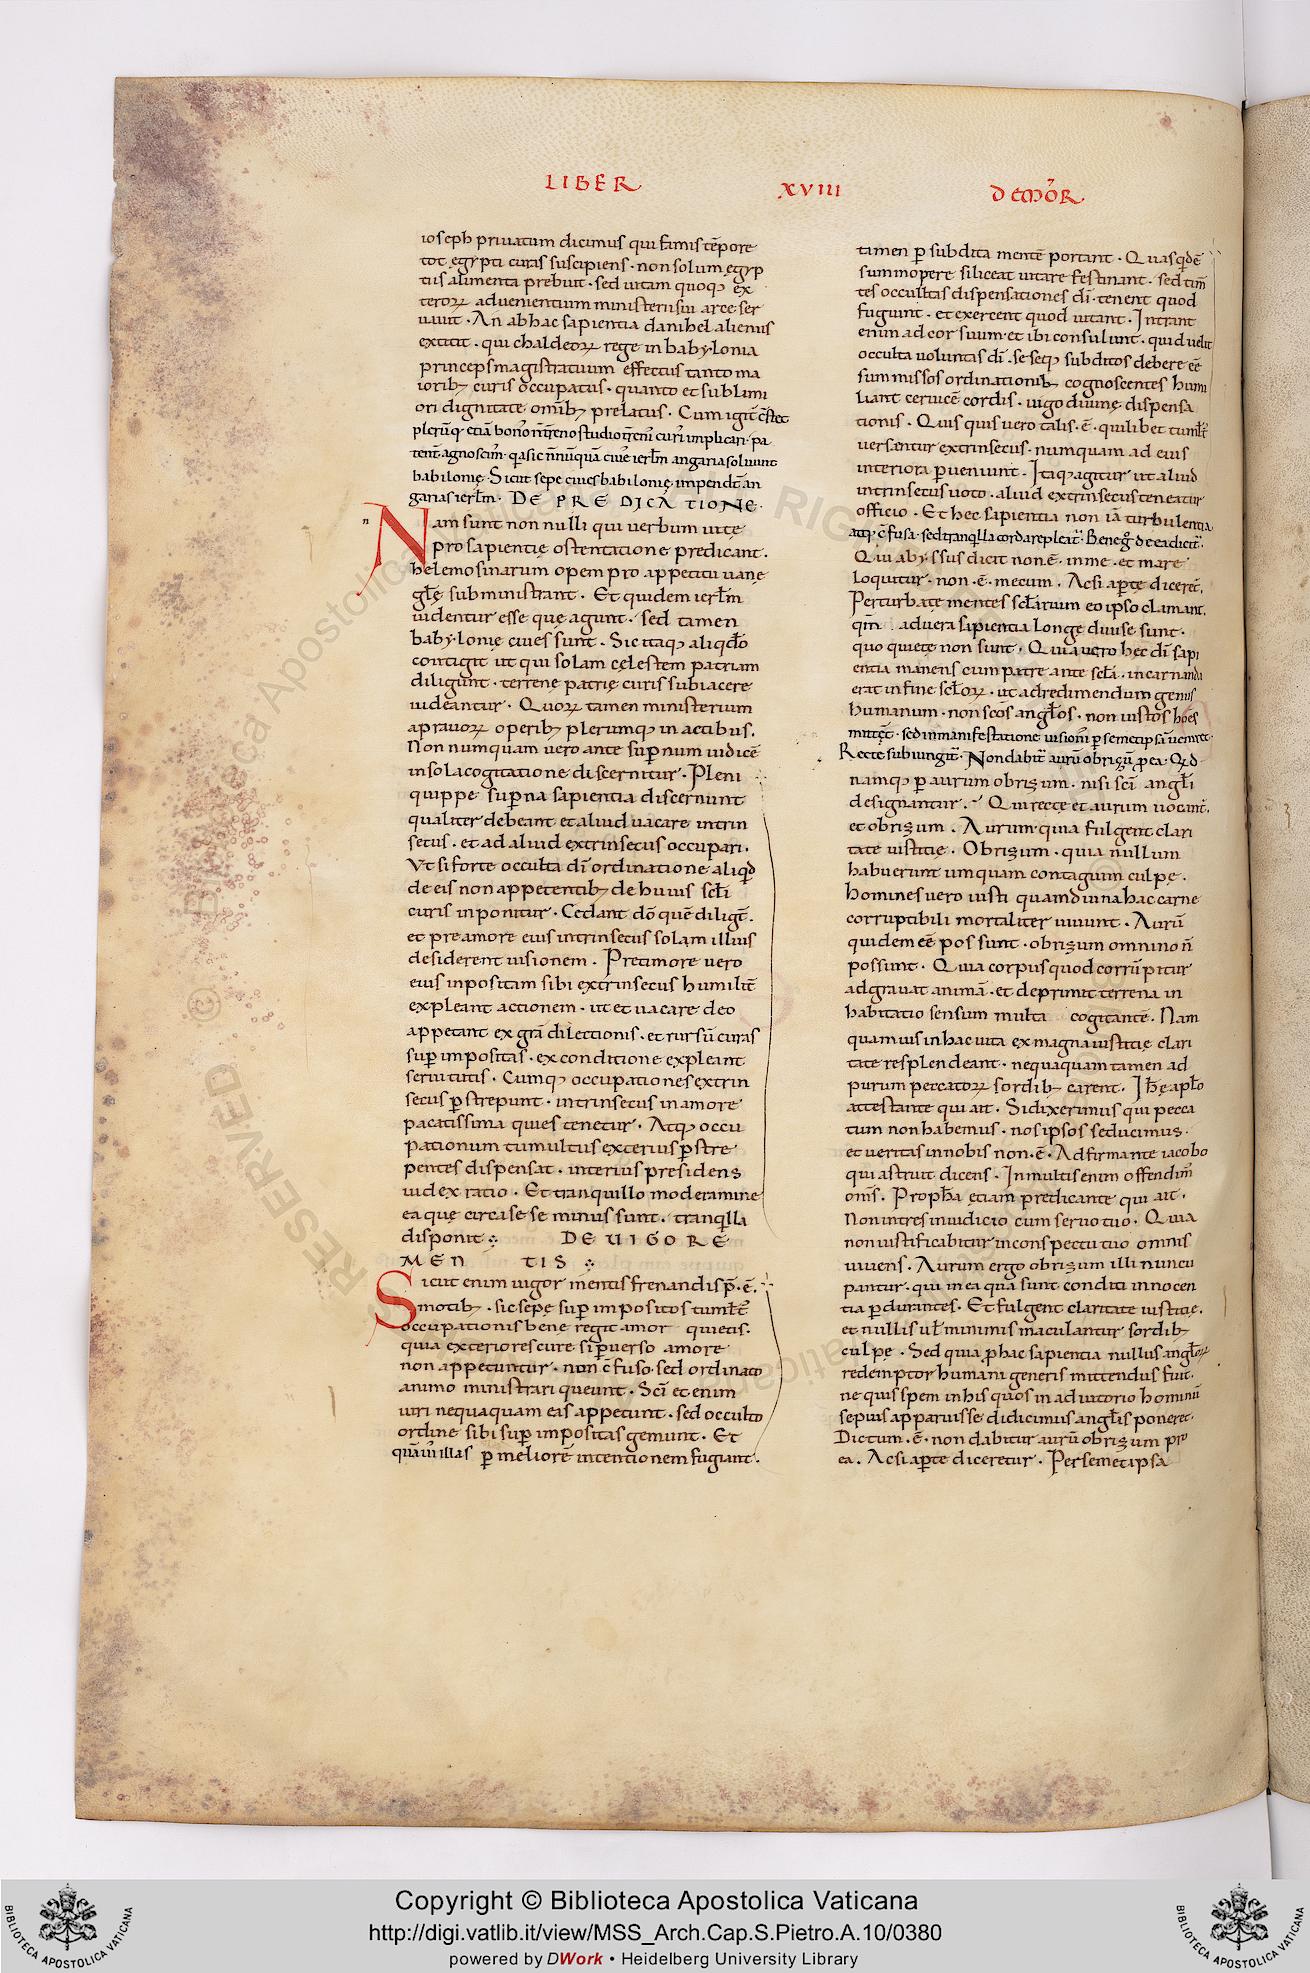 LIBER XVIII DE MOR̄
ioseph priuatum dicimus qui famis tēpore
tot ęgypti curas suscipiens · non solum ęgyp
tiis alimenta prebuit · sed uitam quoq; ex
terorꝝ aduenientium ministerii sui arce ser
uauit · An ab hac sapientia danihel alienus
extitit · qui chaldeorꝝ rege in babylonia
princeps magistratuum effectus tanto ma
iorib; curis occupatus · quanto et sublimi
ori dignitate omib; prelatus · Cum igit̄ c̄stet
babilonię · Sicut sepe ciues babilonię impendūt an
garias ierlm̄ · DE PREDICATIONE ·
Nam sunt non nulli qui uerbum uitę
pro sapientię ostentatione predicant .
helemosinarum opem pro appetitu uanę
głę subministrant · Et quidem ierłm
uidentur esse quę agunt · sed tamen
babylonię ciues sunt · Sic itaq; aliqdo
contigit ut qui solam cęlestem patriam
diligunt · terrenę patrię curis subiacere
uideantur · Quorꝝ tamen ministerium
a prauorꝝ operib; plerumq; in actibus .
Non numquam uero ante supnum iudicē
in sola cogitatione discernitur · Pleni
quippe supna sapientia discernunt
qualiter debeant et aliud uacare intrin
secus · et ad aliud extrinsecus occupari .
Vt si forte occulta dī ordinatione aliqd
de eis non appetentib; de huius scłi
curis inponitur · Cedant dō quē diligt̄ .
et pre amore eius intrinsecus solam illius
desiderent uisionem . Pre timore uero
eius inpositam sibi extrinsecus humilit̄
expleant actionem · ut et uacare deo
appetant ex grā dilectionis · et rursū curas
sup impositas · ex conditione expleant
seruitutis · Cumq; occupationes extrin
secus pstrepunt · intrinsecus in amore
pacatissima quies tenetur · Atq; occu
pationum tumultus exterius pstre
pentes dispensat · interius presidens
iudex ratio · Et tranquillo moderamine
ea quę circa se se minus sunt . tranqlla
disponit · DE UIGORE
MENTIS
Sicut enim uigor mentis frenandis p̄ . ē .
motib; · sic sepe sup impositos tumlt̄
occupationis bene regit amor quietis .
quia exteriores curę si puerso amore
non appetuntur · non c̄fuso · sed ordinato
animo ministrari queunt · Scī et enim
uiri nequaquam eas appetunt · sed occulto
ordine sibi sup impositas gemunt · Et
quāuis illas p meliorē intentionem fugiant .
tamen p subdita mentē portant · Quas qdē
summopere si liceat uitare festinant · sed tim̄
tes occultas dispensationes dī · tenent quod
fugiunt · et exercent quod uitant · Intrant
enim ad cor suum · et ibi consulunt · quid uelit
occulta uoluntas dī · se seq; subditos debere eē
summissos ordinationib; cognoscentes humi
liant ceruicē cordis · iugo diuinę dispensa
tionis · Quis quis uero talis · ē · quilibet tumlt̄
uersentur extrinsecus · numquam ad eius
interiora pueniunt · Itaq; agitur ut aliud
intrinsecus uoto · aliud extrinsecus teneatur
officio · Et hec sapientia non iā turbulenta
atq; c̄fusa · sed tranqlla corda repleat̄ · Bene g̊ de ea dicit̄ .
Qui abyssus dicit non ē · in me · et mare
loquitur · non · ē · mecum . Acsi aptę dicerēt .
Perturbatę mentes scłarium eo ipso clamant .
qm̄ . ad uera sapientia longe diuise sunt .
quo quietę non sunt · Quia uero hec dī sapi
entia manens cum patre ante scła · incarnanda
erat in fine scłorꝝ · ut ad redimendum genus
humanum · non scōs angłos · non iustos hōes
mittet̄ · sed in manifestatione uisionis p semetipsā uenire .
Recte subiungit̄ · Non dabit̄ aurū obrizū p ea · Qd
namq; p aurum obrizum · nisi scī angłi
designantur . Qui recte et aurum uocant̄ .
et obrizum . Aurum quia fulgent clari
tate iustitię · Obrizum · quia nullum
habuerunt umquam contagium culpę .
homines uero iusti quamdiu in ac carne
corruptibili mortaliter uiuunt · Aurū
quidem eē possunt · obrizum omnino n̄
possunt · Quia corpus quod corrūpitur
adgrauat animā · et deprimit terrena in
habitatio sensum multa cogitantē . Nam
quamuis in hac uita ex magna iustitię clari
tate resplendeant · nequaquam tamen ad
purum peccatorꝝ sordib; carent .
attestante qui ait . Si dixerimus qui pecca
tum non habemus · nos ipsos seducimus .
et ueritas in nobis non · ē · Adfirmante iacobo
qui astruit dicens . In multis enim offendim̄
oms̄ . Propha etiam predicante qui ait .
Non intres in iudicio cum seruo tuo . Quia
non iustificabitur in conspectu tuo omnis
uiuens . Aurum ergo obrizum illi nuncu
pantur · qui in ea qua sunt conditi innocen
tia pdurantes . Et fulgent claritate iustitię .
et nullis uł minimis maculantur sordib;
culpę · Sed quia p hac sapientia nullus angłorꝝ
redemptor humani generis mittendus fuit .
ne quis spem in his quos in adiutorio hominū
sepius apparuisse didicimus angłis poneret .
Dictum . ē . non dabitur aurū obrizum pro
ea . Acsi apte diceretur . Per semetipsa
Copyright © Biblioteca Apostolica Vaticana
http://digi.vatlib.it/view/MSS_Arch.Cap.S.Pietro.A.10/0380
powered by DWork • Heidelberg University Library
BIBLIOTECA APOSTOLICA VATICANA
BIBLIOTECA APOSTOLICA VATICANA